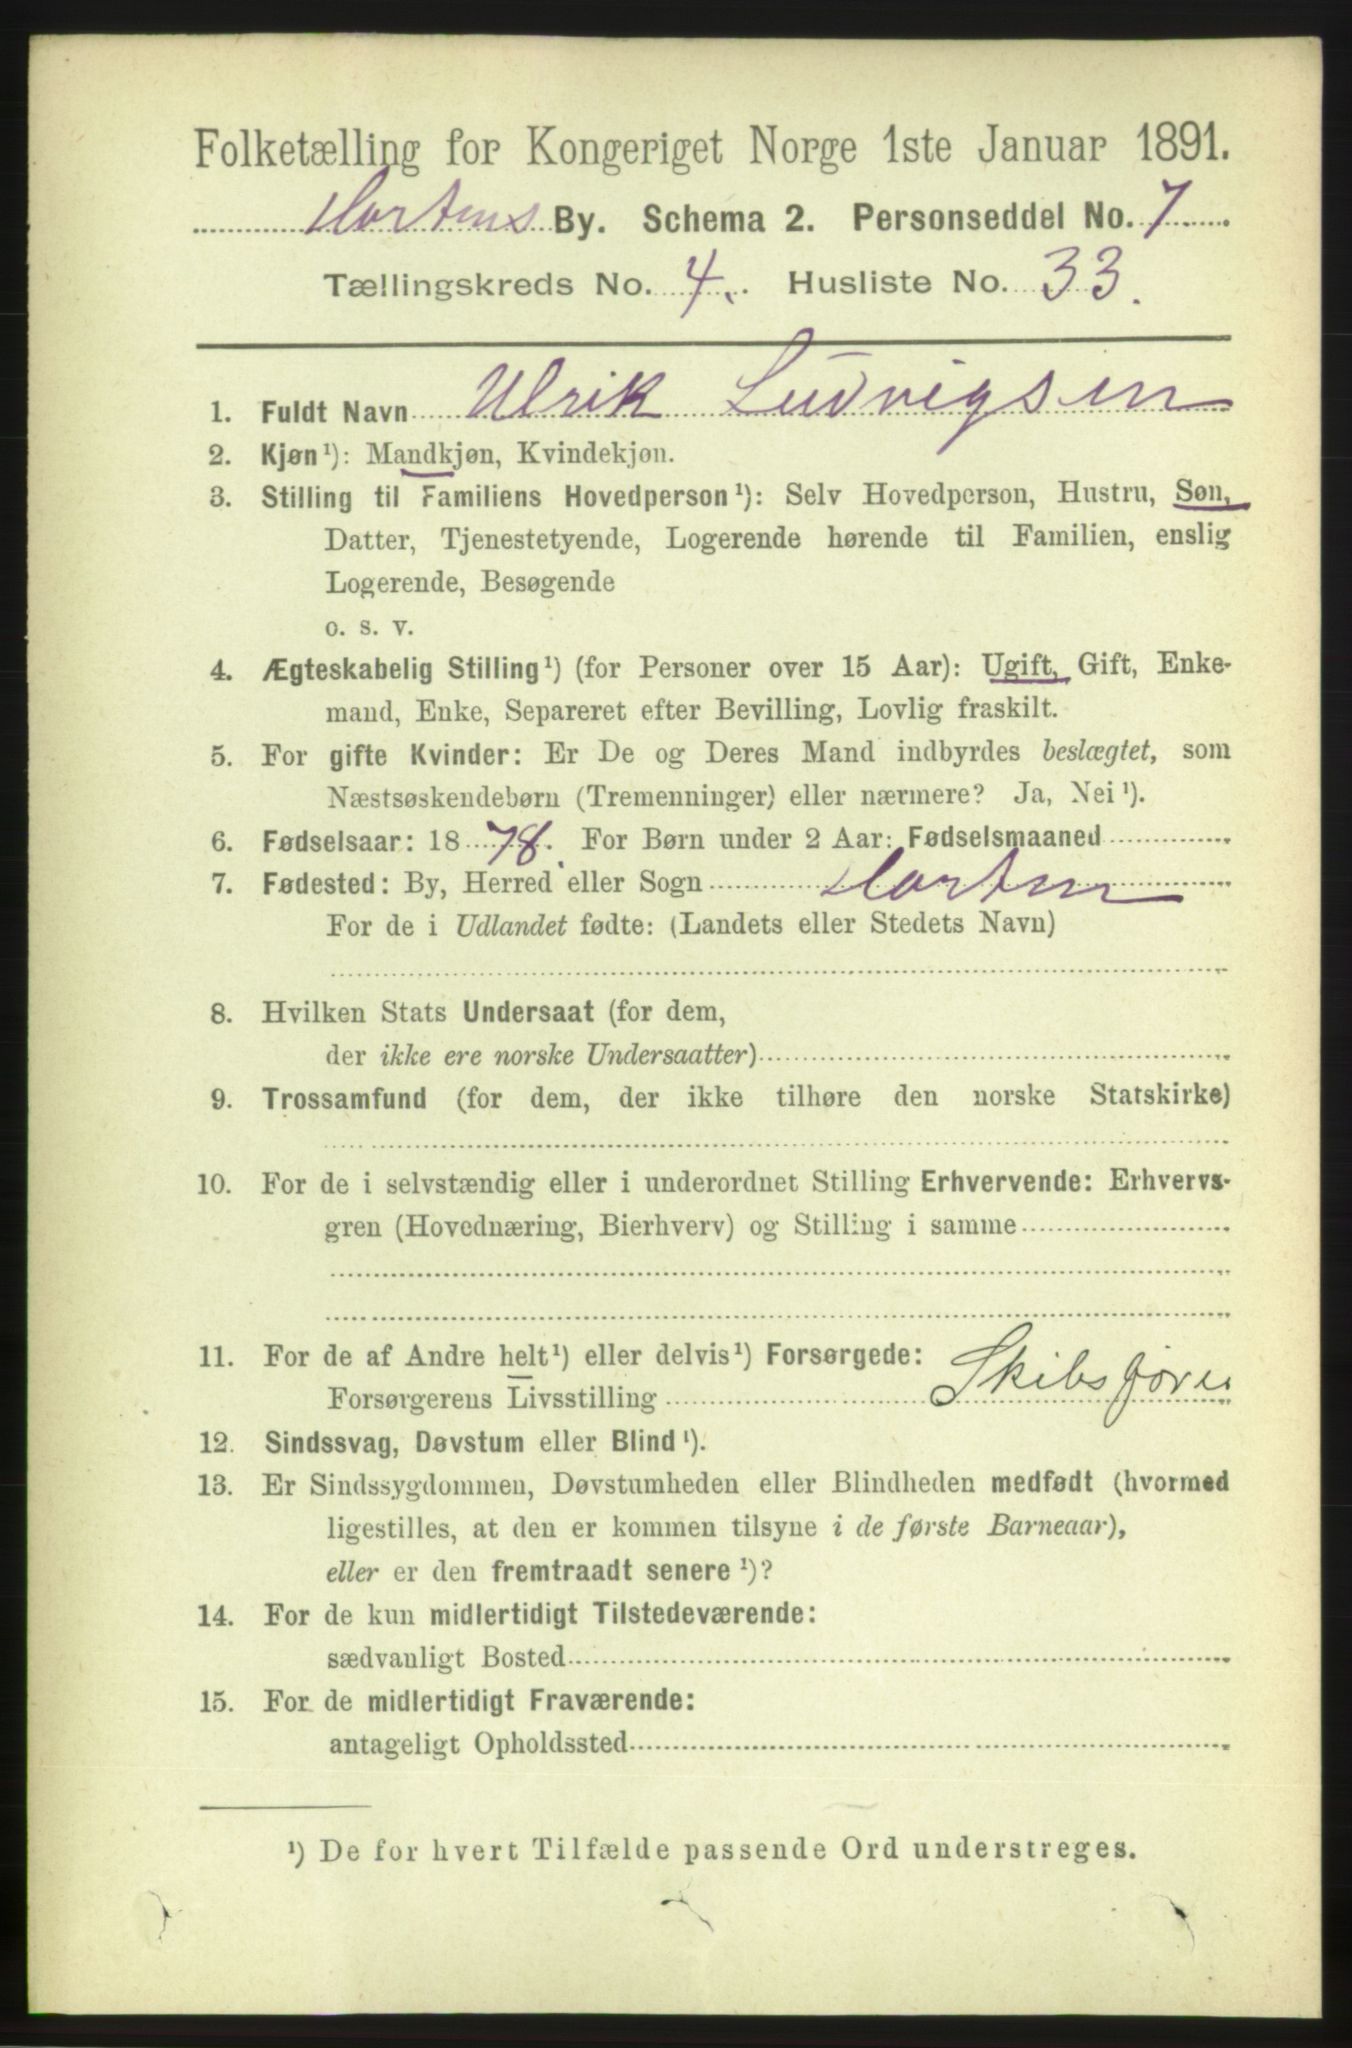 Folketælling for Kongeriget Norge 1ste Januar 1891.
Hortens By. Schema 2. Personseddel No. 7
Tællingskreds No. 4. Husliste No. 33.
1. Fuldt Navn Ulrik Ludvigsen
2. Kjøn¹): Mandkjøn, Kvindekjøn.
3. Stilling til Familiens Hovedperson¹): Selv Hovedperson, Hustru, Søn,
Datter, Tjenestetyende, Logerende hørende til Familien, enslig
Logerende, Besøgende
o. s. v.
4. Ægteskabelig Stilling¹) (for Personer over 15 Aar): Ugift, Gift, Enke-
mand, Enke, Separeret efter Bevilling, Lovlig fraskilt.
5. For gifte Kvinder: Er De og Deres Mand indbyrdes beslægtet, som
Næstsøskendebørn (Tremenninger) eller nærmere? Ja, Nei¹).
6. Fødselsaar: 1878. For Børn under 2 Aar: Fødselsmaaned
7. Fødested: By, Herred eller Sogn Horten
For de i Udlandet fødte: (Landets eller Stedets Navn)
8. Hvilken Stats Undersaat (for dem,
der ikke ere norske Undersaatter)
9. Trossamfund (for dem, der ikke tilhøre den norske Statskirke)
10. For de i selvstændig eller i underordnet Stilling Erhvervende: Erhvervs-
gren (Hovednæring, Bierhverv) og Stilling i samme
11. For de af Andre helt¹) eller delvis¹) Forsørgede:
Forsørgerens Livsstilling Skibsfører
12. Sindssvag, Døvstum eller Blind¹).
13. Er Sindssygdommen, Døvstumheden eller Blindheden medfødt (hvormed
ligestilles, at den er kommen tilsyne i de første Barneaar),
eller er den fremtraadt senere¹)?
14. For de kun midlertidigt Tilstedeværende:
sædvanligt Bosted
15. For de midlertidigt Fraværende:
antageligt Opholdssted
¹) De for hvert Tilfælde passende Ord understreges.